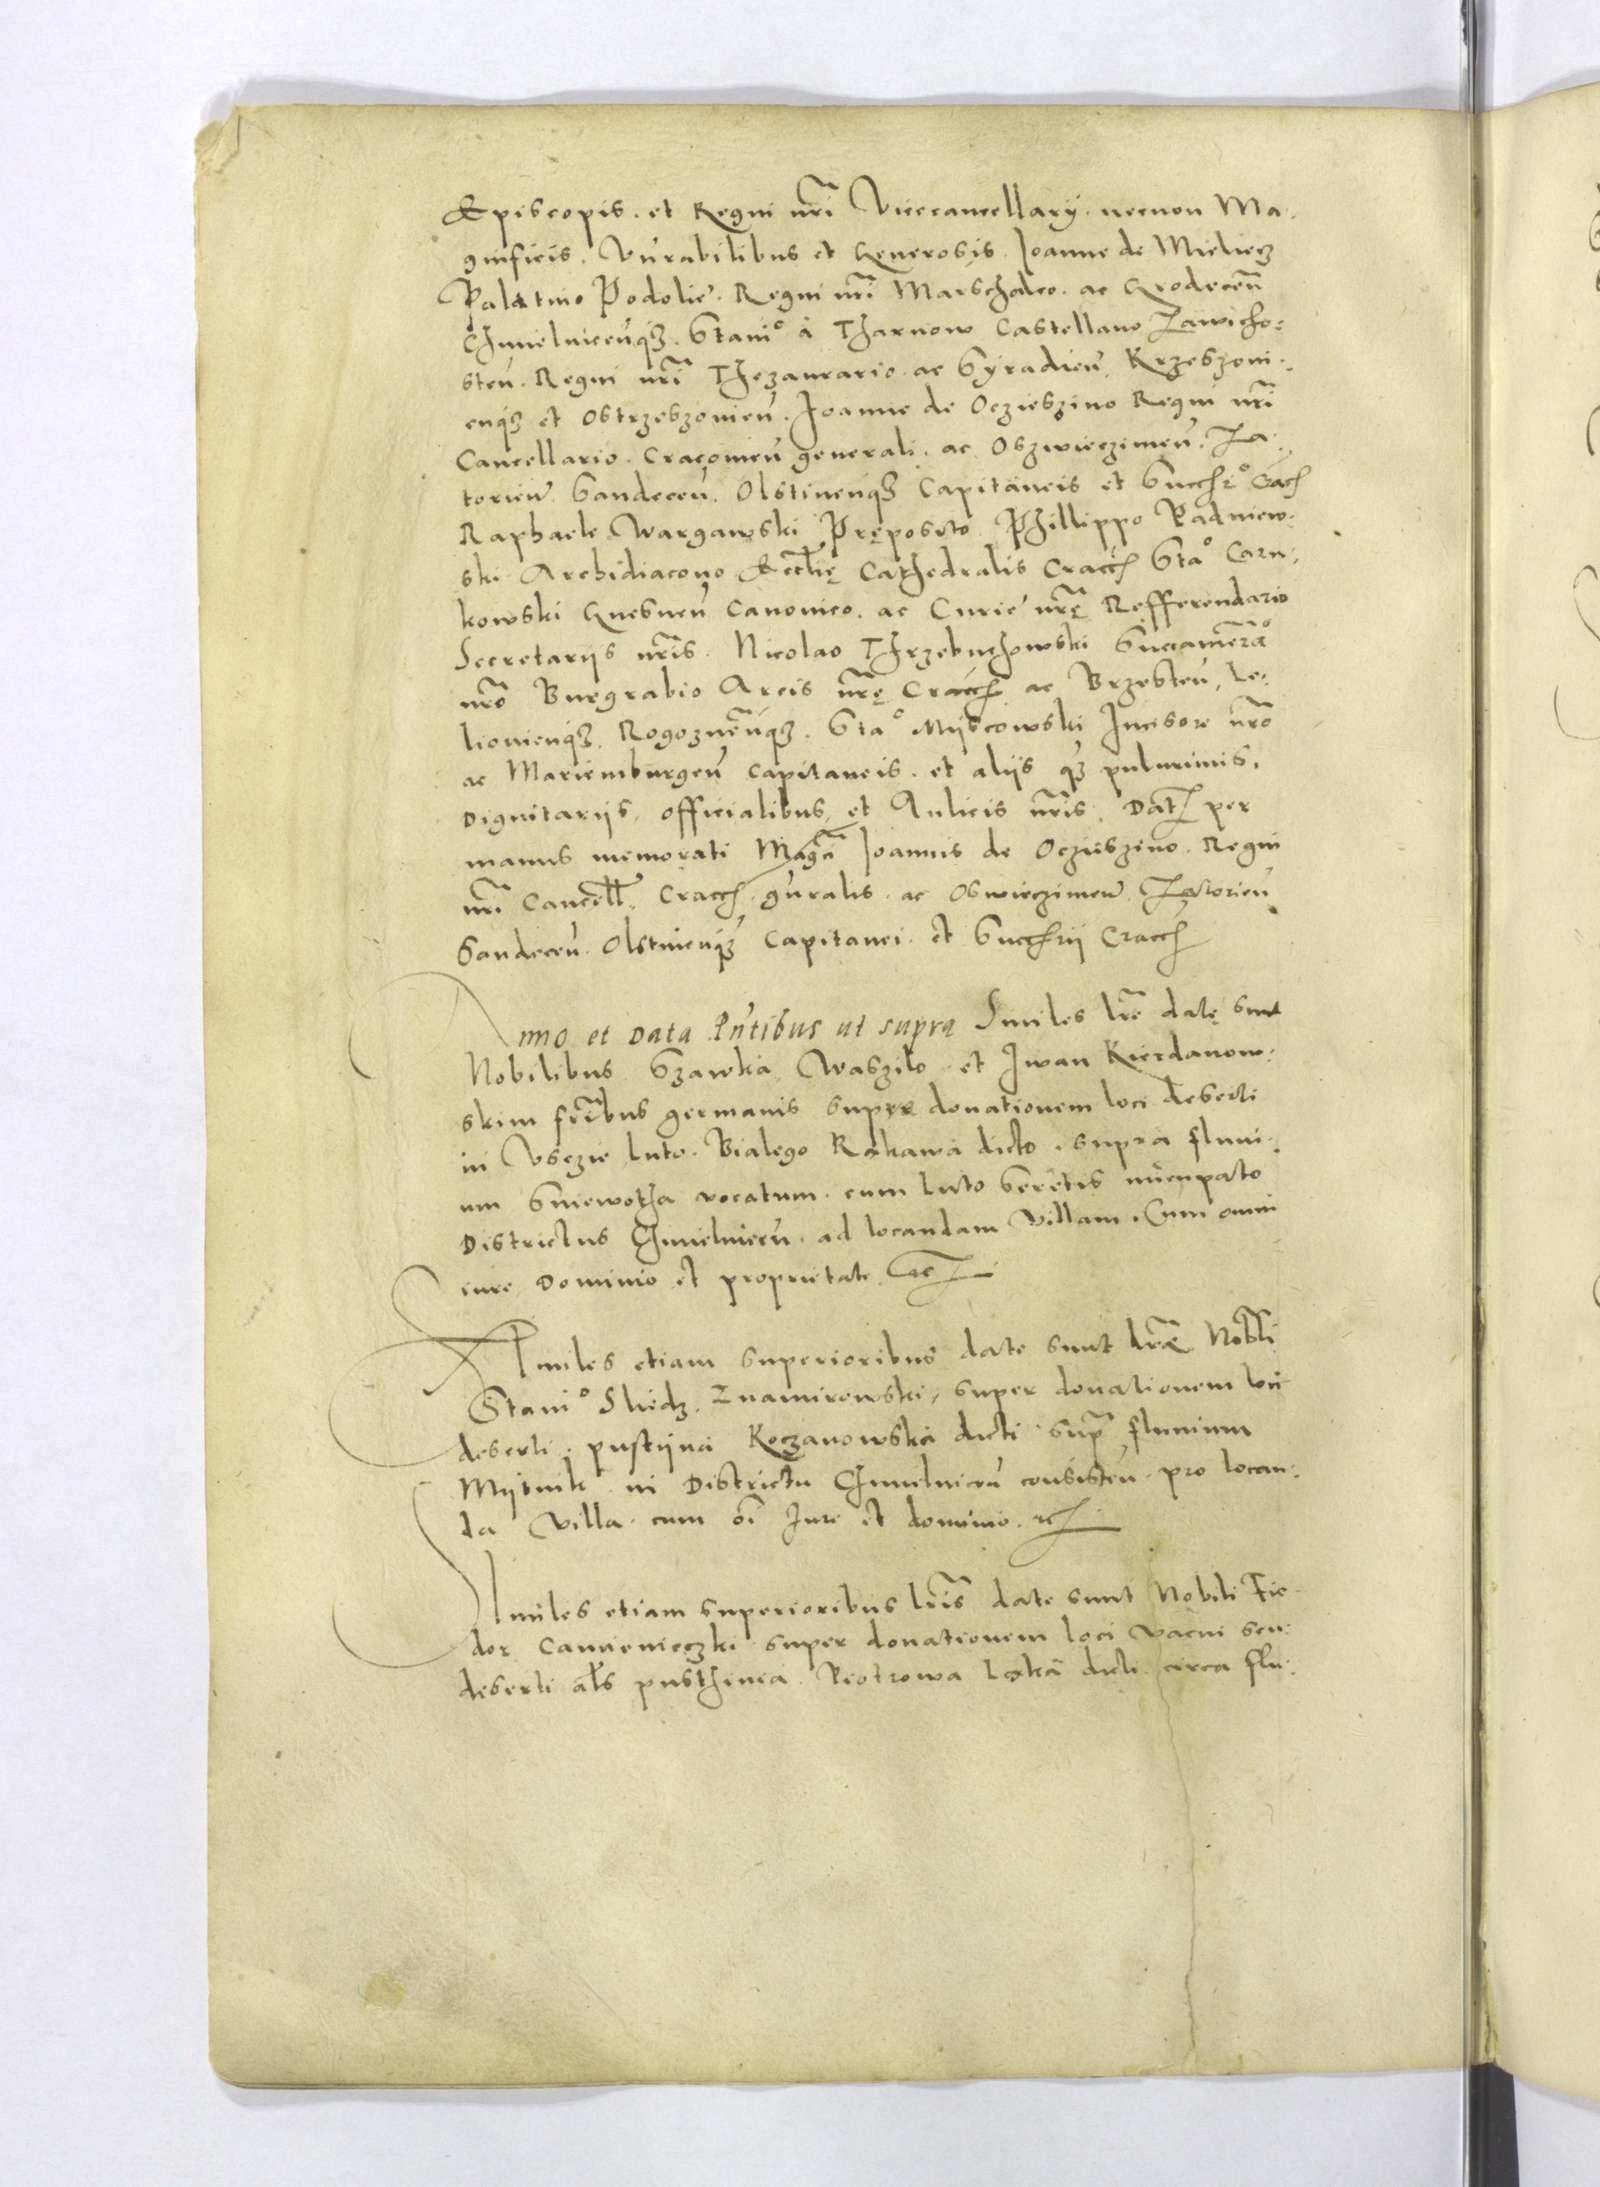 Episcopis. et Regni nrĩ Vicecancellarÿ. necnon Ma-
gnificis. Vnrabilibus et Generosis. Joanne de Mieliecz
Palatino Podolie. Regni nrĩ Marschalco. ac Grodecen̄
Chmielnicen̄qȝ. Stani° à Tharnow Castellano Zawicho-
sten̄. Regni nrĩ Thezaurario. ac Syradien̄. Krzeszoui-
enqȝ et Ostrzeszouien̄. Joanne de Oczieszino Regni nrĩ
Cancellario. Cracouien̄ generali. ac Oszwieczimen̄. Za-
torien̄. Sandecen̄. Olstinenqȝ Capitaneis et Succhr° Cracħ
Raphaele Wargawski Pręposito Phillippo Padniew-
ski Archidiacono Ecclię Cathedralis Craccħ Sta° Carn-
kowski Gnesnen̄ Canonico. ac Curie nrę Refferendario
Secretariis nrĩs. Nicolao Thrzebuchowski Succamera°
nrõ Burgrabio Arcis nrę Craccħ ac Brzesten̄, Le-
liouienqȝ Rogoznen̄qȝ. Sta° Myscowski Incisore nrõ
ac Mariemburgen̄ Capitaneis. et aliis qȝ pulurimis.
Dignitariis, officialibus, et Aulicis nrĩs. Datȝ per
manus memorati Magci Joannis de Oczieszino. Regni
nrĩ Cancell̃. Craccħ. gnralis. ac Oswieczimen̄ Zatorien̄
Sandecen̄ Olstinenqȝ Capitanei. et Succhrii Craccħ
Anno et Data Pñtibus ut supra Similes lrẽ datę sunt
Nobilibus Szawka Waszilo et Iwan Kierdanow-
skim frĩbus germanis super donationem loci deserti
in Vsczie luto. Bialego Rakawa dicto. supra fluui-
um Sniewotha vocatum. cum luto Seretis nũcupato
Districtus Chmielnicen̄. ad locandam Villam. Cum omni
iure Dominio et proprietate etc
Similes etiam superioribus date sunt lrẽ Nobili
Stani° Slidz. Znamirowski, super donationem loci
deserti. pustÿna Koczanowska dicti supr̃ fluuium
Mytnik in Districtu Chmielnicen̄ consisten̄. pro locan-
da Villa. cum oĩ Jure et dominio. etc
Similes etiam superioribus lrĩs date sunt Nobili Fie-
dor Camienieczki super donationem loci vacui seu
deserti al̃s pusthinia Piotrowa Lakà dicti circa flu-